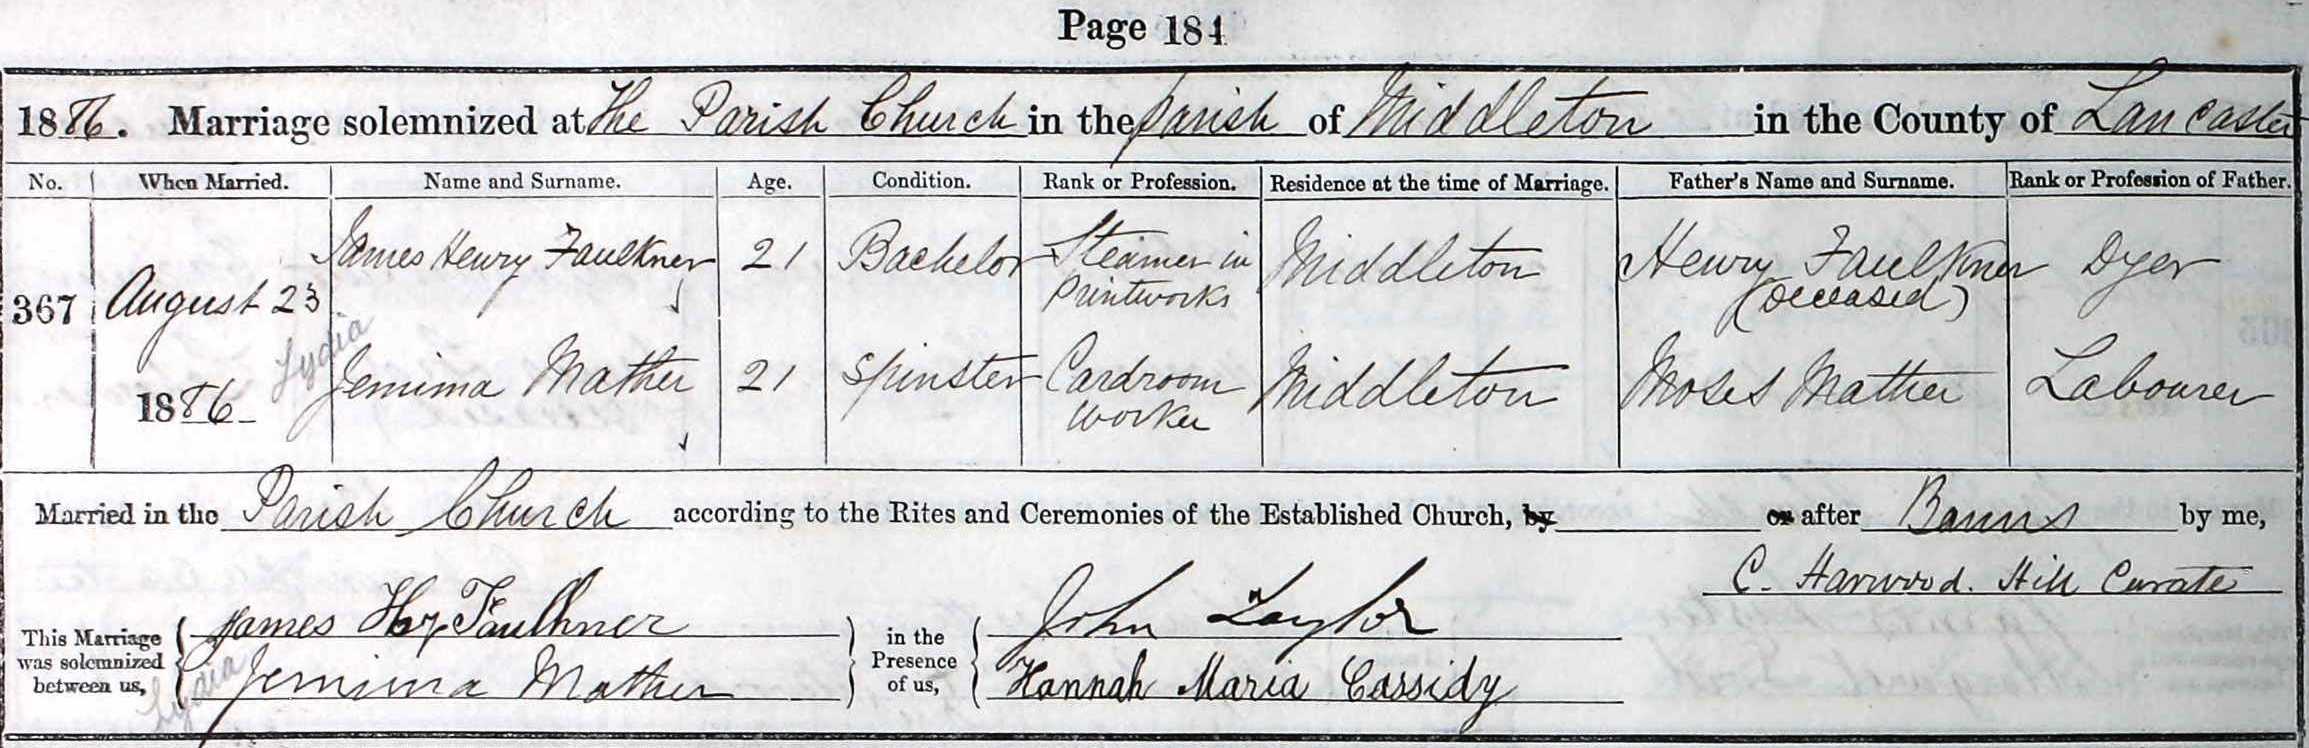 Page 184
1886. Marriage solemnized at the Parish Church in the parish of Middleton in the County of Lancaster
No. When Married. Name and Surname. Age. Condition. Rank or Profession. Residence at the time of Marriage. Father's Name and Surname. Rank or Profession of Father.
367 August 23 1886 James Henry Faulkner 21 Bachelor Steamer in Printworks Middleton Henry Faulkner (deceased) Dyer
Lydia Jemima Mather 21 Spinster Cardroom worker Middleton Moses Mather Labourer
Married in the Parish Church according to the Rites and Ceremonies of the Established Church, by or after Banns by me,
C. Harwood. Hill Curate
This Marriage was solemnized between us, James Hy Faulkner in the Presence of us, John Taylor
Lydia Jemima Mather Hannah Maria Cassidy